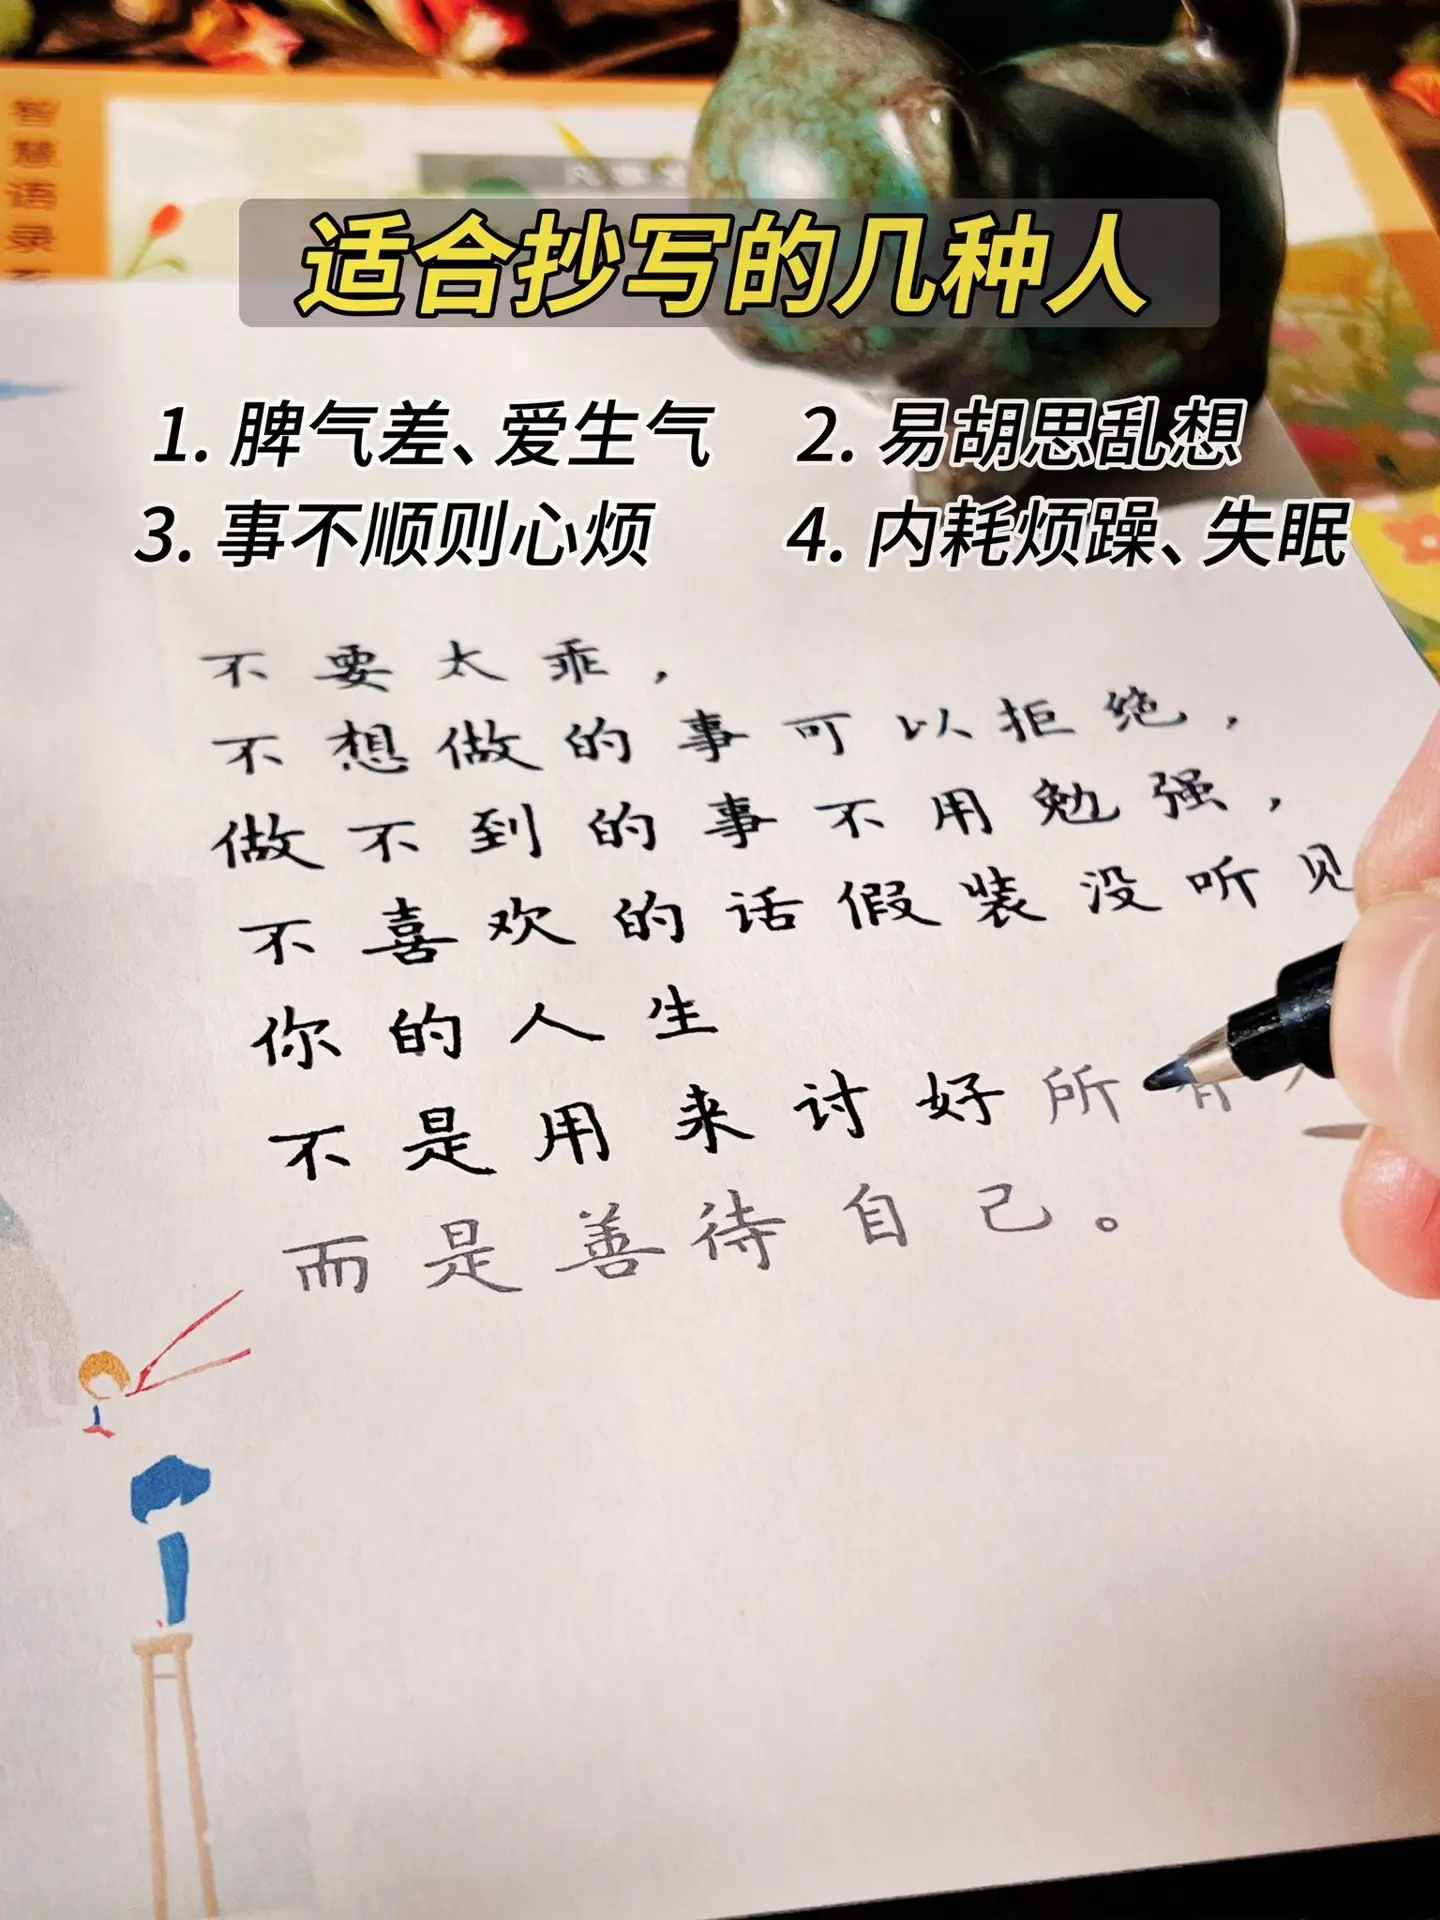 智慧语录
适合抄写的几种人
1. 脾气差、爱生气 2. 易胡思乱想
3. 事不顺则心烦 4. 内耗烦躁、失眠
不要太乖，
不想做的事可以拒绝，
做不到的事不用勉强，
不喜欢的话假装没听见
你的人生
不是用来讨好所有
而是善待自己。